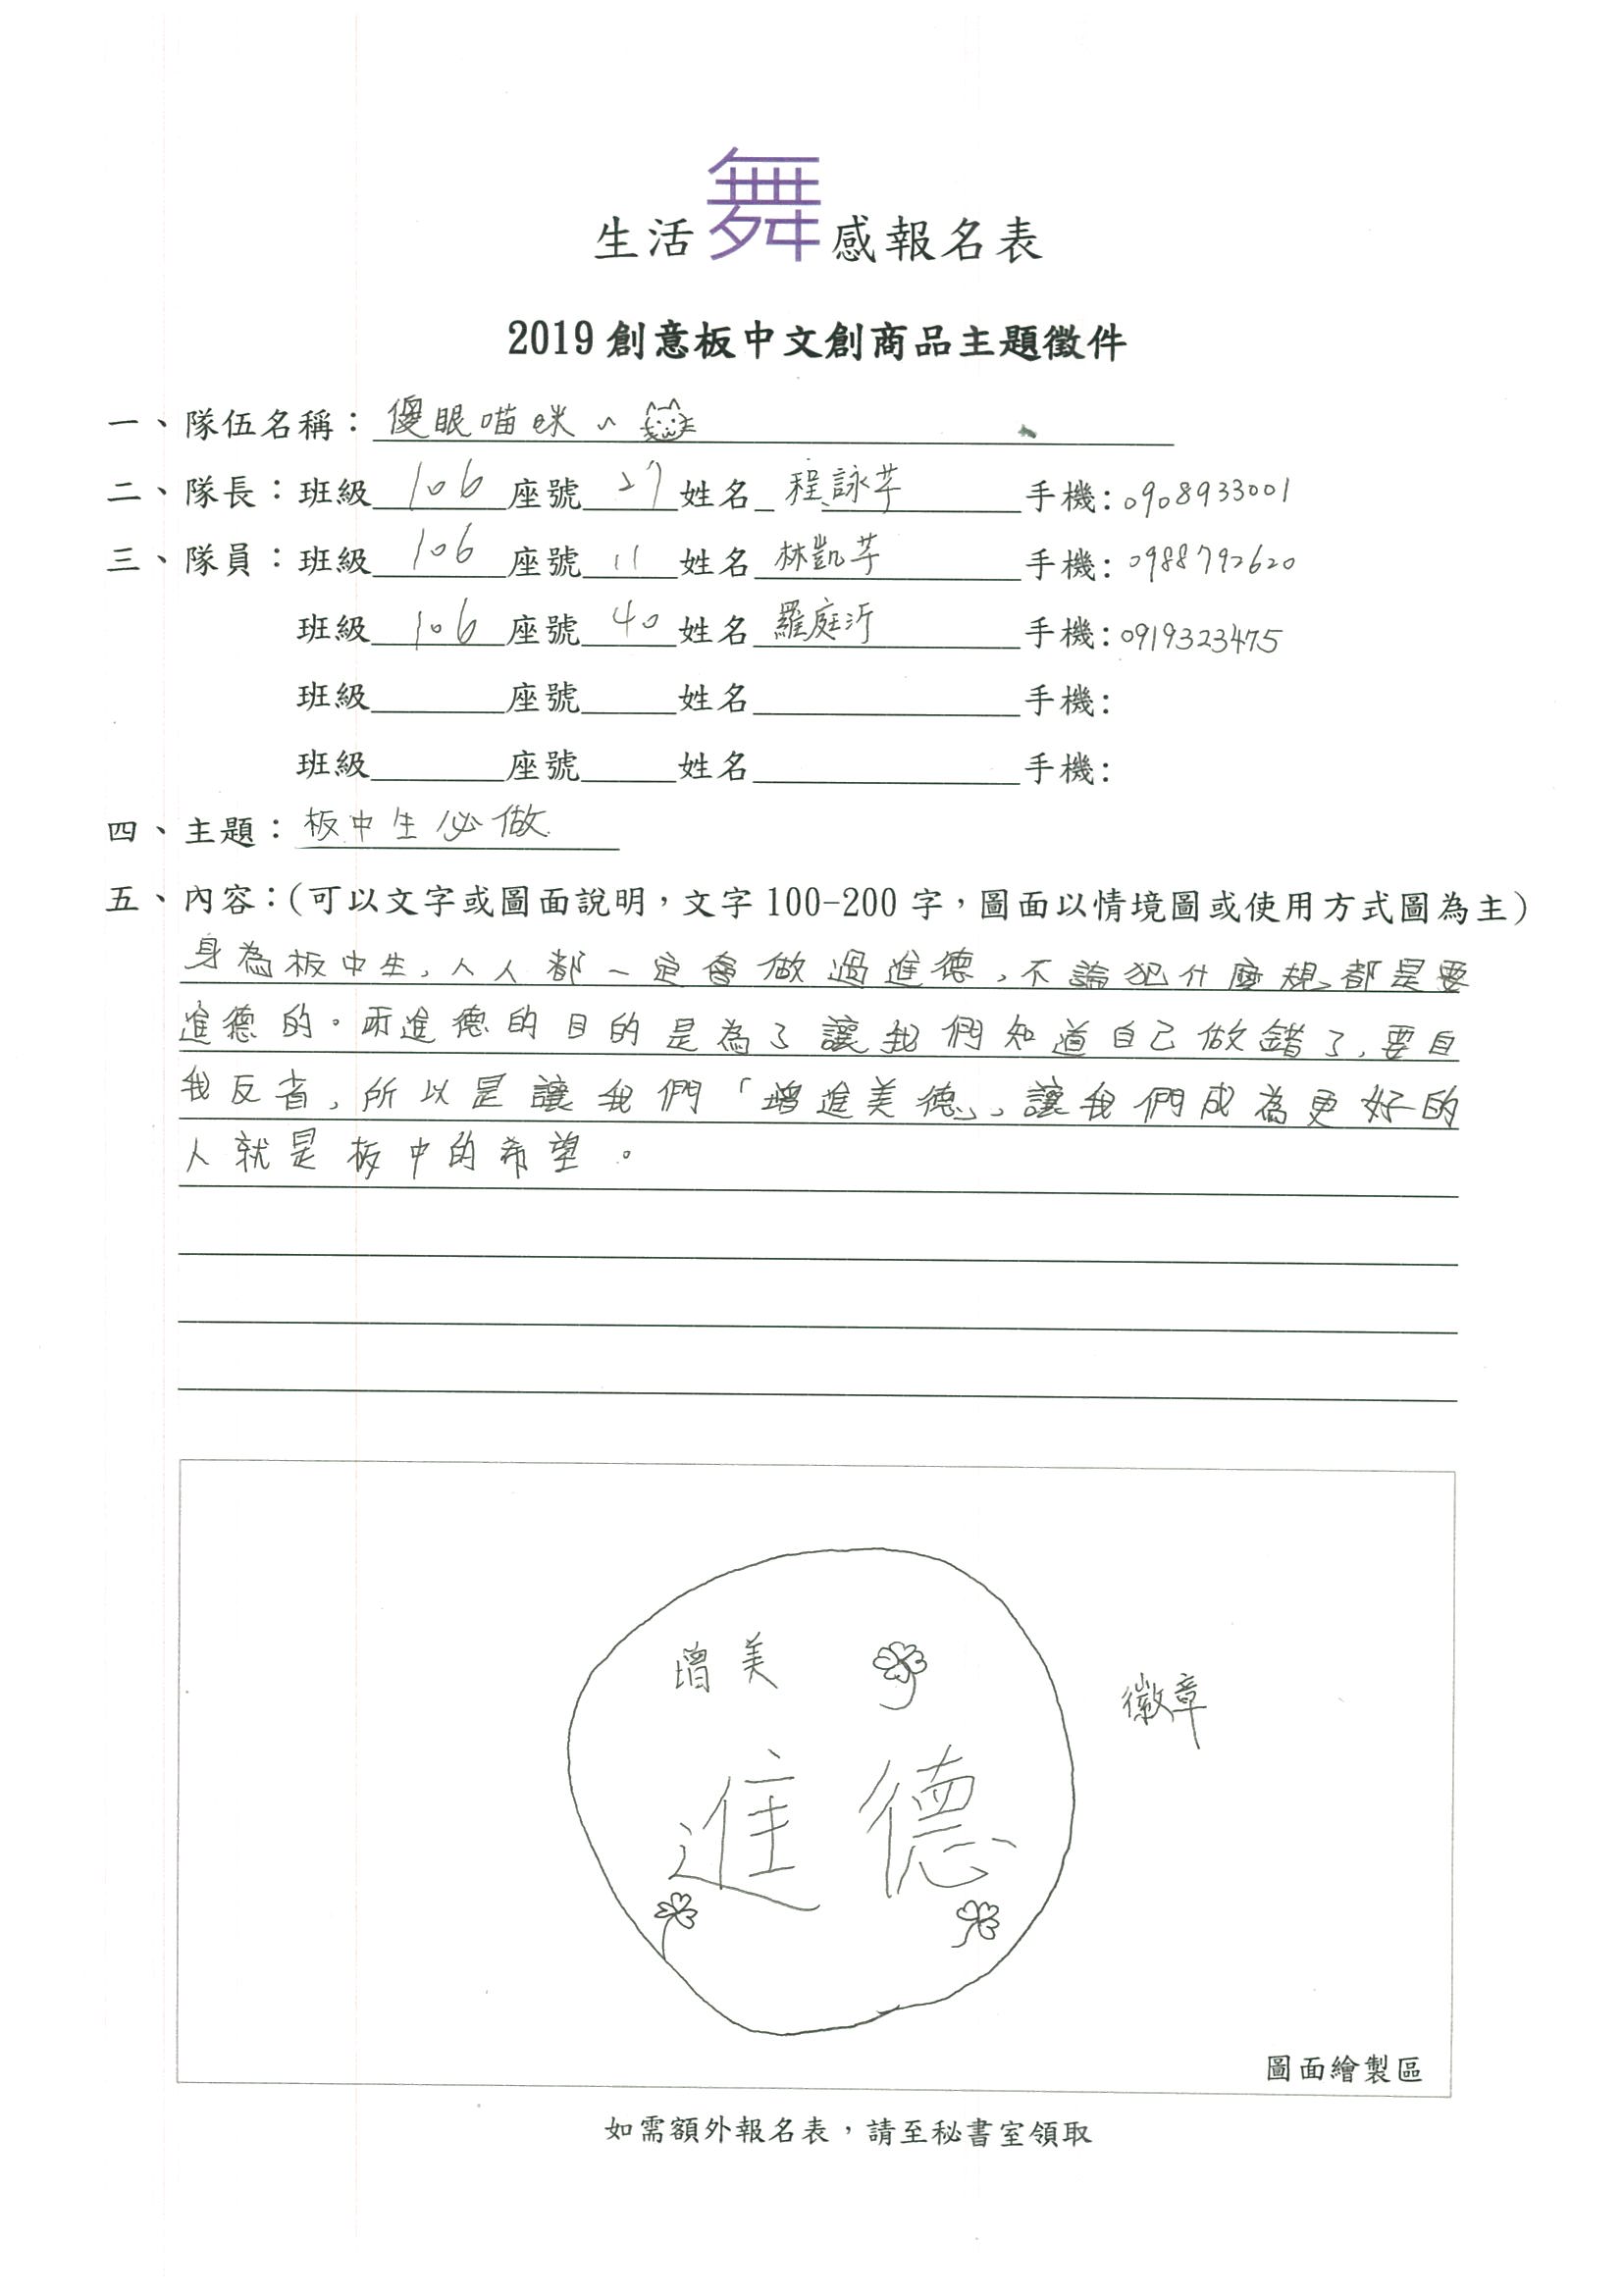 生活舞感報名表
2019創意板中文創商品主題徵件
一、隊伍名稱：傻眼喵咪~
二、隊長：班級106座號27姓名程詠芊手機:0908933001
三、隊員：班級106座號11姓名林凱芊手機:0988792620
班級106座號40姓名羅庭沂手機:0919323475
班級______座號____姓名____________手機:
班級______座號____姓名____________手機:
四、主題：板中生必做
五、內容：(可以文字或圖面說明，文字100-200字，圖面以情境圖或使用方式圖為主)
身為板中生，人人都一定會做過進德，不論犯什麼規，都是要
進德的。而進德的目的是為了讓我們知道自己做錯了，要自
我反省，所以是讓我們「增進美德」，讓我們成為更好的
人就是板中的希望。
增美
徽章
進德
圖面繪製區
如需額外報名表，請至秘書室領取